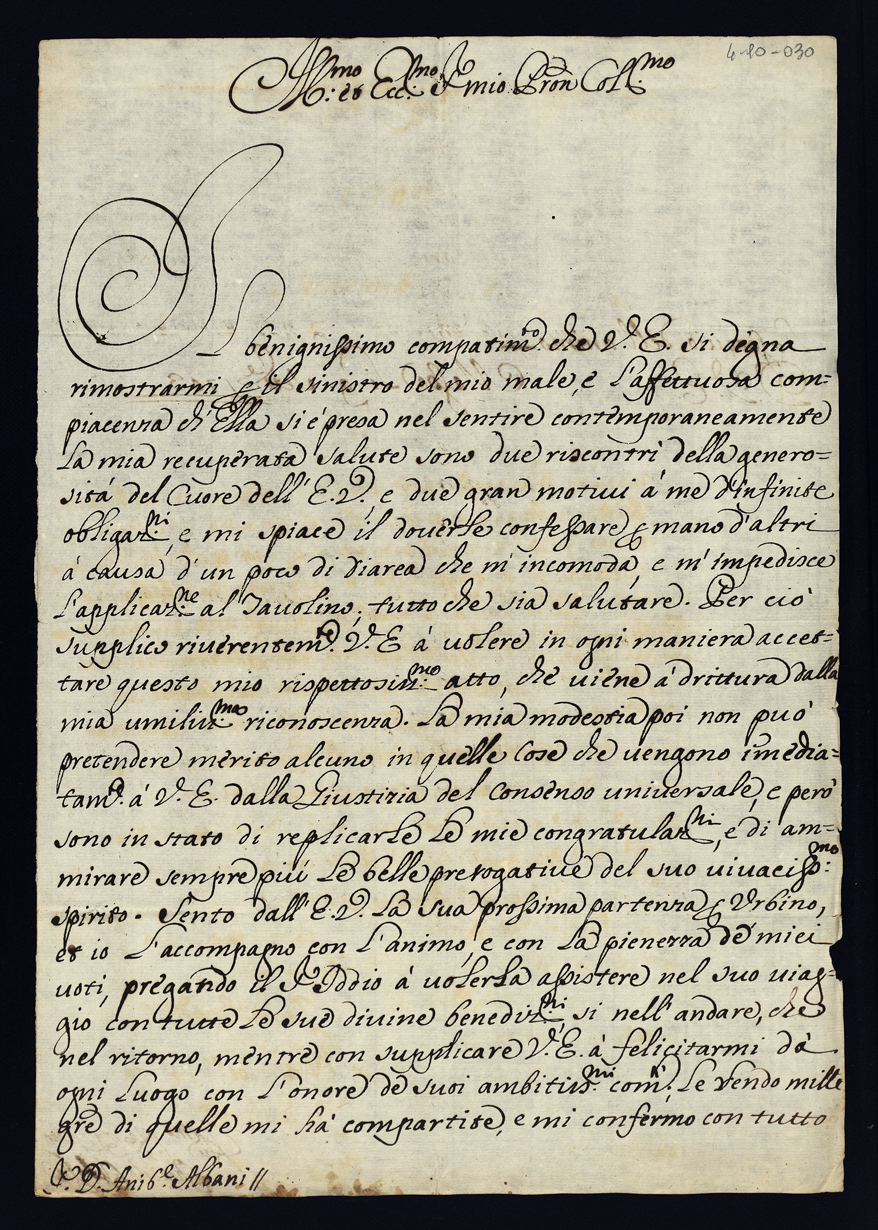 4-10-030
Ill.mo et Ecc.mo Sr mio Pron Coll.mo
Il benignissimo compatim.to che V.E. si degna
rimostrarmi p il sinistro del mio male, e l'affettuosa com=
piacenza ch'Ella si é presa nel sentire contemporaneamente
la mia recuperata salute sono due riscontri della genero=
sitá del Cuore dell'E.V., e due gran motivi á me d'infinite
obligaz.ni, e mi spiace il doverle confessare p mano d'altri
á causa d'un poco di diarea che m'incomoda, e m'impedisce
l'applicaz.ne al Tavolino, tutto che sia salutare. Per ció
supplico riverentem.te V.E á volere in ogni maniera accet=
tare questo mio rispettosiss.mo atto, che viene á drittura dalla
mia umiliss.ma riconoscenza. La mia modestia poi non puó
pretendere merito alcuno in quelle cose che vengono imedia=
tam.e á V.E. dalla Giustizia del consenso universale, e peró
sono in stato di replicarle le mie congratulaz.ni, e di am=
mirare sempre piú le belle prerogative del suo vivaciss.mo
spirito. Sento dall'E.V. la sua prossima partenza p Urbino,
et io l'accompagno con l'animo, e con la pienezza de miei
voti, pregando il Sr Iddio á volerla assistere nel suo viag=
gio con tutte le sue divine benediz.ni si nell'andare, che
nel ritorno, mentre con supplicare V.E. á felicitarmi dá
ogni luogo con l'onore de suoi ambitiss.mi com.i, le rendo mille
gre di quelle mi há compartite, e mi confermo con tutto
Sr. D. Anib.e Albani //